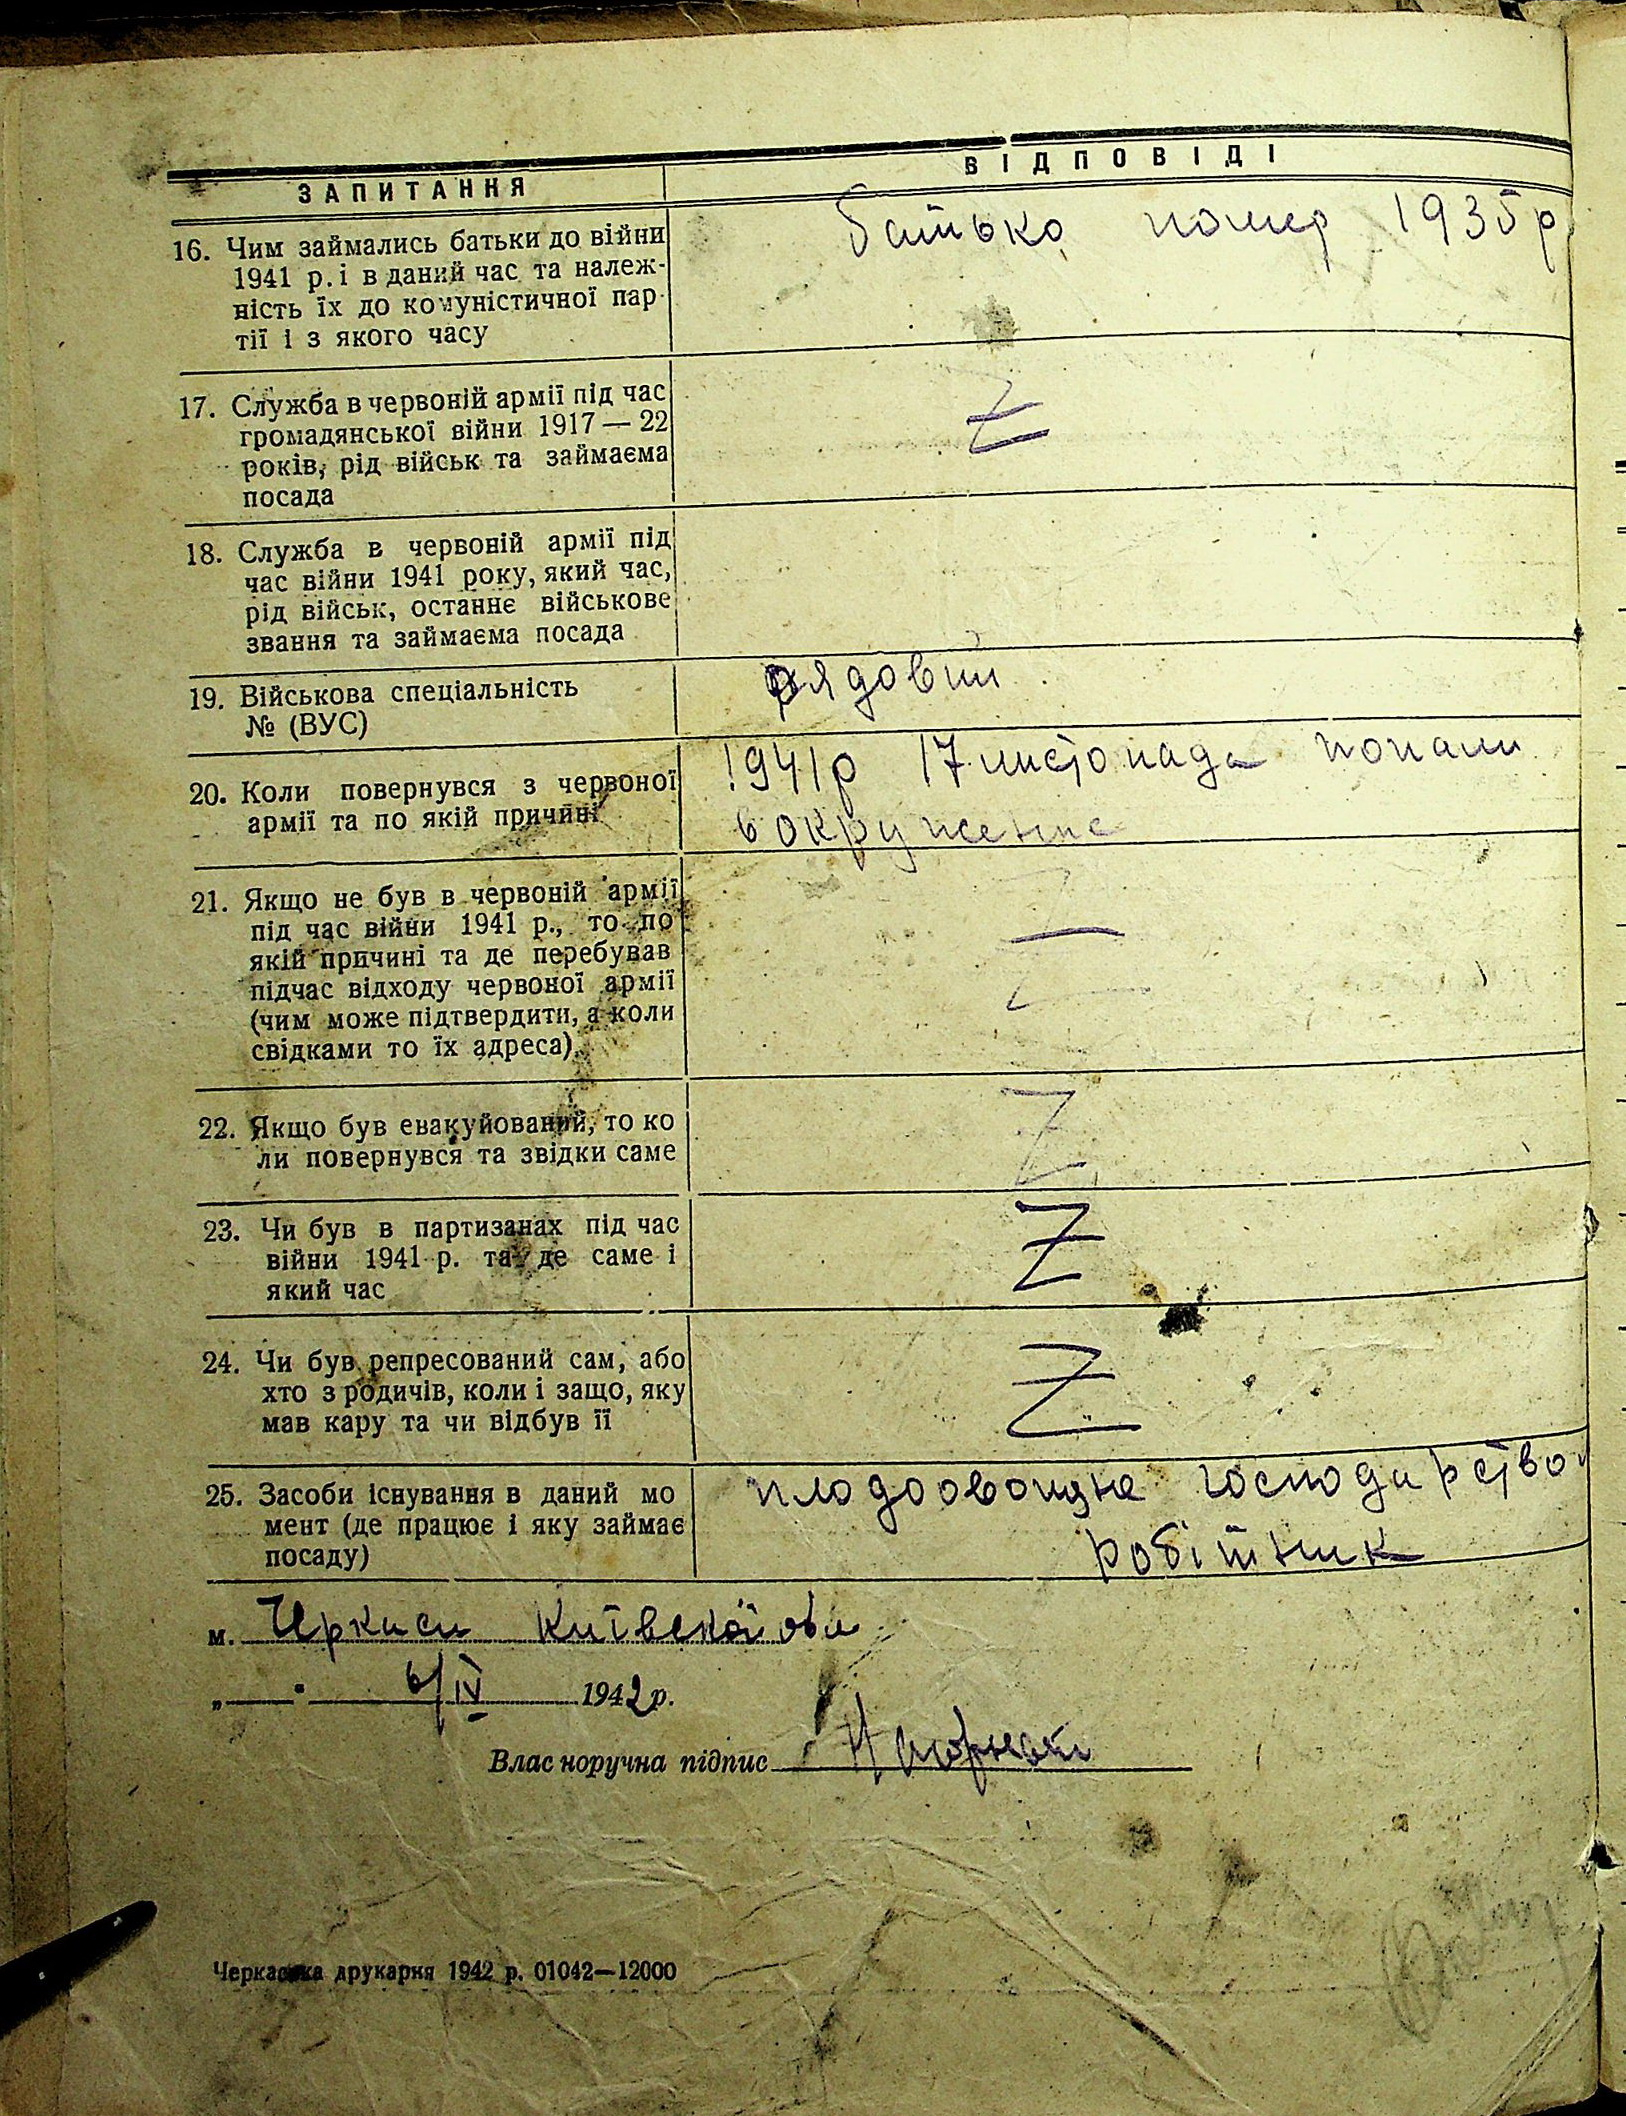 ЗАПИТАННЯ
ВІДПОВІДІ
16. Чим займались батьки до війни
1941 р. і в даний час та належ-
ність їх до комуністичної пар-
тії і з якого часу
батько помер 1935 р
17. Служба в червоній армії під час
громадянської війни 1917 — 22
років, рід військ та займаєма
посада
Z
18. Служба в червоній армії під
час війни 1941 року, який час,
рід військ, останнє військове
звання та займаєма посада
19. Військова спеціальність
№ (ВУС)
рядовий
20. Коли повернувся з червоної
армії та по якій причині
1941р 17 листопада попали
в окружение
21. Якщо не був в червоній армії
під час війни 1941 р., то по
якій причині та де перебував
підчас відходу червоної армії
(чим може підтвердити, а коли
свідками то їх адреса).
Z
22. Якщо був евакуйований, то ко
ли повернувся та звідки саме
Z
23. Чи був в партизанах під час
війни 1941 р. та де саме і
який час
Z
24. Чи був репресований сам, або
хто з родичів, коли і защо, яку
мав кару та чи відбув її
Z
25. Засоби існування в даний мо
мент (де працює і яку займає
посаду)
плодоовощне господарство
робітник
м. Черкаси Київской обл
„ — " 6/IV 1942 р.
Власноручна підпис
Черкаська друкарня 1942 р. 01042—12000